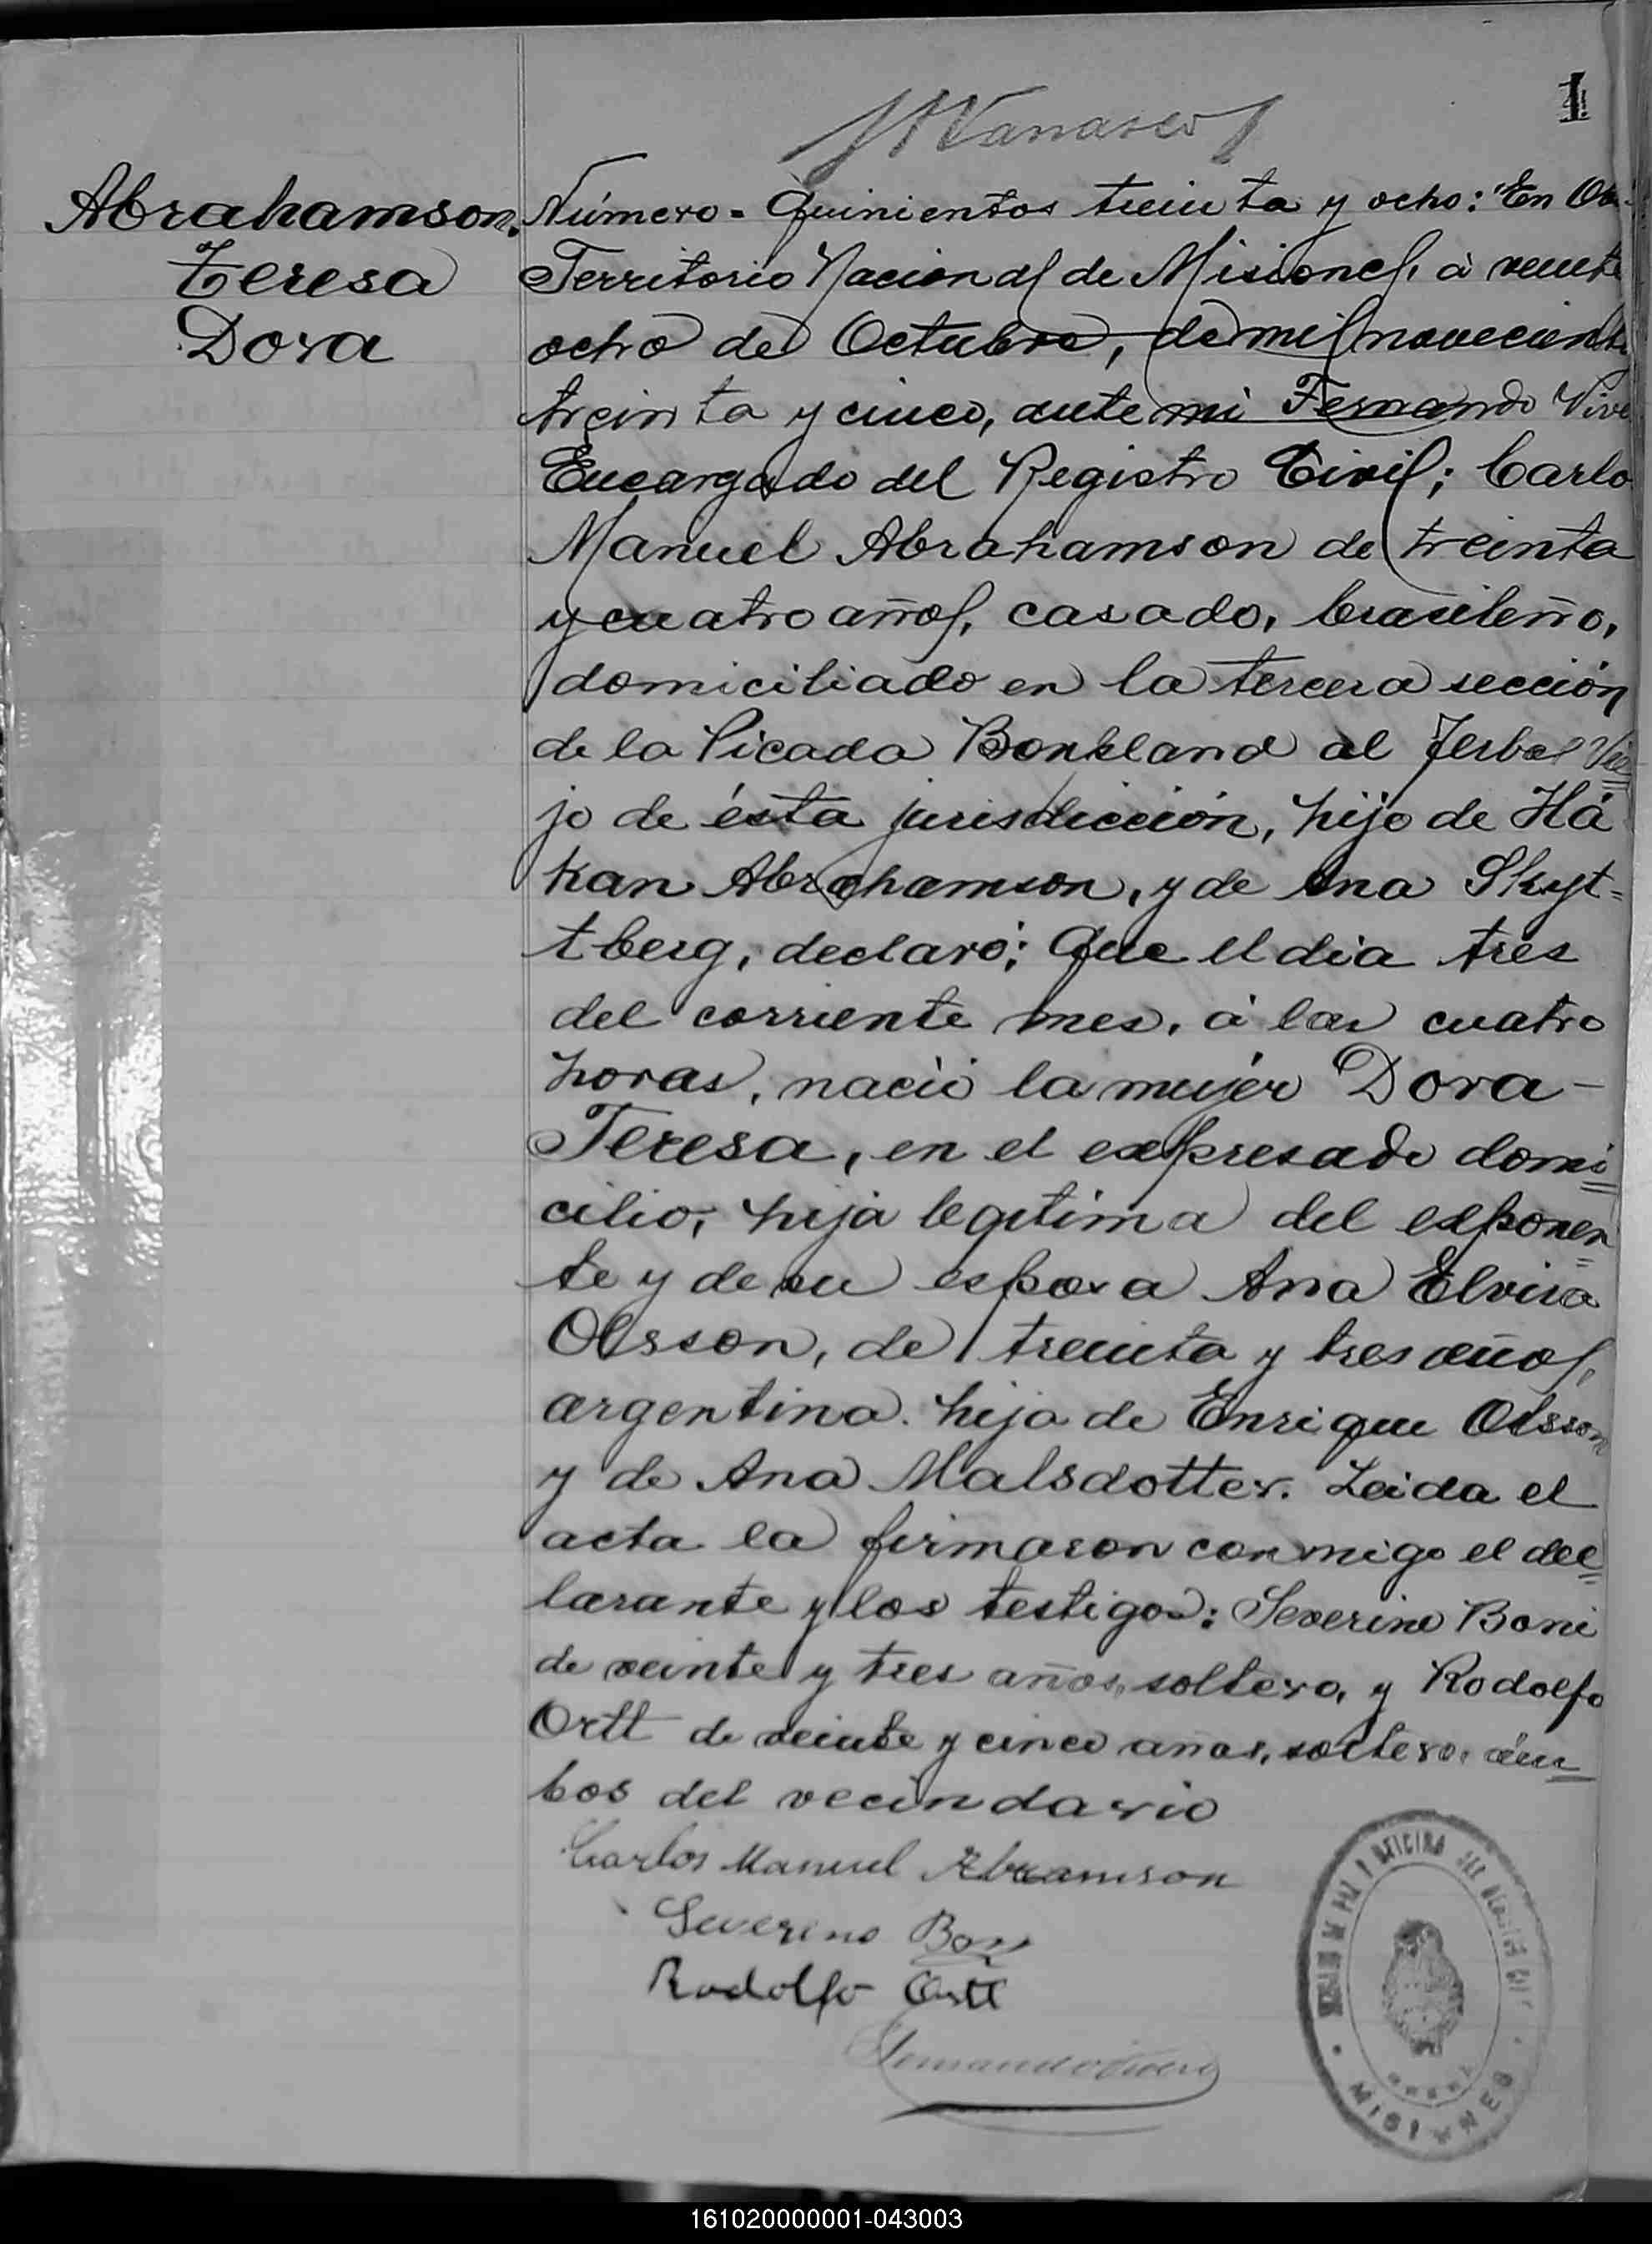 1
Abrahamson.
Teresa
Dora
Número - Quinientos treinta y ocho: En
Territorio Nacional de Misiones, á veinte
ocho de Octubre, de mil novecientos
treinta y cinco, ante mi Fernando Vive
Encargado del Registro Civil; Carlo
Manuel Abrahamson de treinta
y cuatro años, casado, brasileño,
domiciliado en la tercera sección
de la Picada Bonpland al Yerbal Vie=
jo de ésta jurisdicción, hijo de Há
kan Abrahamson, y de Ana Skyt=
tberg, declaró; Que el dia tres
del corriente mes, á las cuatro
horas, nació la mujér Dora-
Teresa, en el expresado domi=
cilio, hija legítima del exponen=
te y de su esposa Ana Elvira
Olsson, de treinta y tres años,
argentina. hija de Enrique Olsson
y de Ana Malsdotter. Leida el
acta la firmaron conmigo el dec=
larante y los testigos: Severino Boni
de veinte y tres años, soltero, y Rodolfo
Ortt de veinte y cinco años, soltero, ám=
bos del vecindario
Carlos Manuel Abramson
Severino Boni
Rodolfo Ortt
MISIONES
161020000001-043003